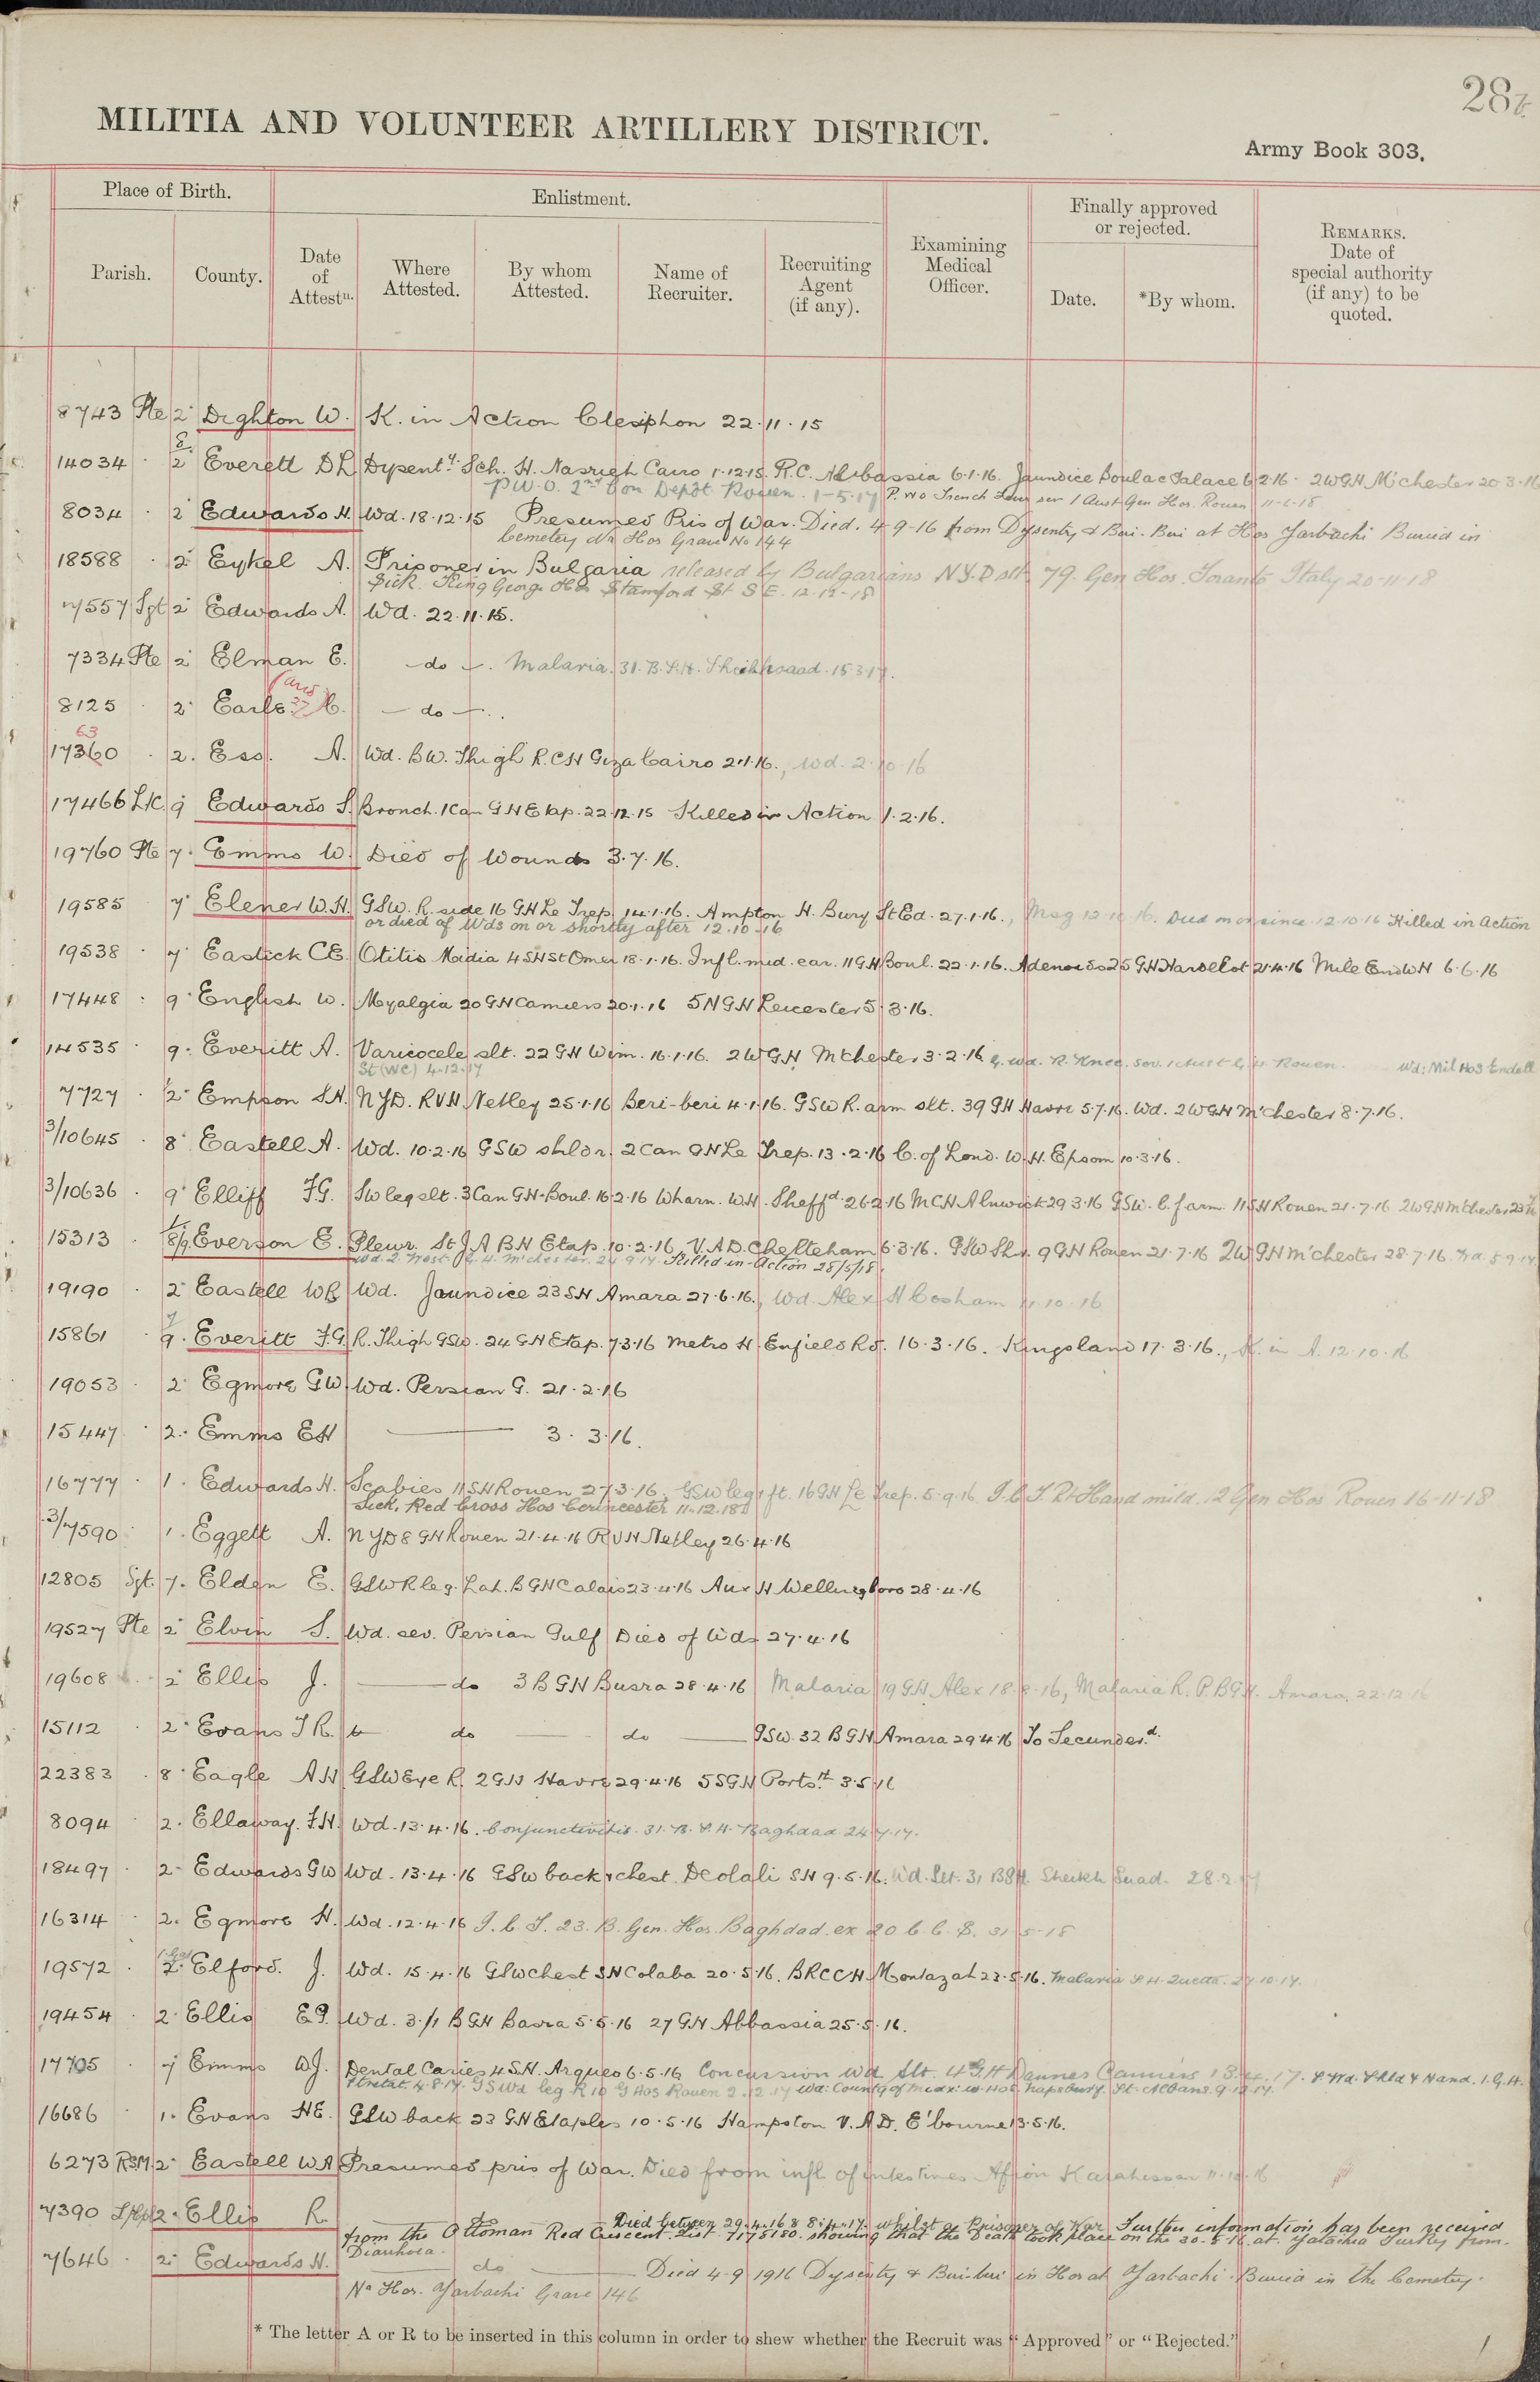 28b
MILITIA AND VOLUNTEER ARTILLERY DISTRICT.
Army Book 303.
Place of Birth.
Enlistment.
Finally approved or rejected.
Parish.
County.
Date of Attestn.
Where Attested.
By whom Attested.
Name of Recruiter.
Recruiting Agent (if any).
Examining Medical Officer.
Date.
*By whom.
REMARKS. Date of special authority (if any) to be quoted.
8743 Pte 2 Dighton W. K. in Action Clesiphon 22.11.15
14034 · 8 2 Everett DL Dysenty. Sch. H. Nasrieh Cairo 1.12.15. R.C. Abbassia 6.1.16. Jaundice Boulac Palace 6.2.16. 2WGH M'chester 20.3.16
P.U.O. 2nd Con Depôt Rouen. 1-5-17 P.UO Trench Fever sev 1 Aust Gen Hos. Rouen 11-6-18
8034 · 2 Edwards H. Wd. 18.12.15 Presumed Pris of War. Died. 4-9-16 from Dysentry & Beri-Beri at Hos Yarbachi Buried in
Cemetery Nr Hos Grave No 144
18588 · 2 Eykel A. Prisoner in Bulgaria released by Bulgarians N.Y.D slt. 79. Gen Hos. Toranto Italy 20-11-18
Sick. King George Hos Stamford St S.E. 12-12-18
7557 Sgt 2 Edwards A. Wd. 22.11.15.
7334 Pte 2 Elman E. — do —. Malaria. 31. B.S.H. Sheikh saad. 15.3.17.
8125 · 2 Earle C. — do —.
63
17360 · 2. Ess. A. Wd. BW. Thigh R.C.H Giza Cairo 2.1.16., Wd. 2.10.16
17466 L/C. 9 Edwards S. Bronch. 1 Can G H Etap. 22.12.15 Killed in Action 1.2.16.
19760 Pte 7. Emms W. Died of Wounds 3.7.16.
19585 7 Elener W.H. GSW. R. side 16 GH Le Trep. 14.1.16. Ampton H. Bury St Ed. 27.1.16., Msg 12.10.16. Died on or since 12.10.16 Killed in action
or died of Wds on or shortly after 12.10.16
19538 · 7 Eastick C.E. Otitis Madia 4 SH St Omer 18.1.16. Infl. mid. ear. 11 G.H Boul. 22.1.16. Adenoids 25 GH Hardelot 21.4.16 Mile End WH 6.6.16
17448 : 9 English W. Myalgia 20 GH Camiers 20.1.16 5NGH Leicester 5.3.16.
14535 · 9. Everitt A. Varicocele slt. 22 GH Wim. 16.1.16. 2WGH M'chester 3.2.16. G. Wd. R. Knee. sev. 1 Aust G.H. Rouen. Wd: Mil Hos Endell
St (WC) 4.12.17
7727 · 2 Empson S.H. NYD. RVH Netley 25.1.16 Beri-beri 4.1.16. GSW R. arm slt. 39 GH Havre 5.7.16. Wd. 2WGH M'chester 8.7.16.
3/10645 · 8 Eastell A. Wd. 10.2.16 GSW shldr. 2 Can GH Le Trep. 13.2.16 C. of Lond. W.H. Epsom 10.3.16.
3/10636 · 9 Elliff F.G. SW leg slt. 3 Can GH-Boul. 16.2.16 Wharn. W.H. Sheffd. 26.2.16 MCH Alnwick 29.3.16 GSW. l. farm 11 SH Rouen 21.7.16 2WGH M'chester
15313 · 8/9 Everson E. Pleur. St J A B H Etap. 10.2.16. V.A.D. Chelteham 6.3.16. GSW Shr. 9 GH Rouen 21.7.16 2WGH M'chester 28.7.16.
Killed in action 28/5/18.
19190 · 2 Eastell WB Wd. Jaundice 23 SH Amara 27.6.16., Wd. Alex H Cosham 11.10.16
15861 · 7 9. Everitt F.G. R. Thigh GSW. 24 GH Etap. 7.3.16 Metro H. Enfield Rd. 16.3.16. Kingsland 17.3.16., K. in A. 12.10.16
19053 · 2 Egmore GW. Wd. Persian G. 21.2.16
15447 · 2. Emms EH — 3.3.16.
16777 · 1. Edwards H. Scabies 11 SH Rouen 27.3.16. GSW leg ft. 16 GH Le Trep. 5.9.16. I.C.T. Rt Hand mild. 12 Gen Hos Rouen 16-11-18
Sick. Red Cross Hos Cerincester 11.12.18
3/7590 · 1. Eggett A. NYD 8 GH Rouen 21.4.16 RVH Netley 26.4.16
12805 Sgt. 7. Elden E. GSW R leg. Lah. B GH Calais 23.4.16 Aux H Wellingboro 28.4.16
19527 Pte 2 Elvin S. Wd. sev. Persian Gulf Died of Wds 27.4.16
19608 · 2 Ellis J. — do 3 B GH Busra 28.4.16 Malaria 19 GH Alex 18.8.16, Malaria R.P.BGH. Amara. 22.12.16
15112 · 2. Evans T R. do — do — GSW. 32 B GH Amara 29.4.16 To Secunderd.
22383 · 8 Eagle AH GSW Eye R. 2 GH Havre 29.4.16 5SGH Portsth 3.5.16
8094 · 2. Ellaway. F.H. Wd. 13.4.16. Conjunctivitis. 31. B.S.H. Baghdad 24.7.17.
18497 · 2 Edwards GW Wd. 13.4.16 GSW back & chest Deolali SH 9.5.16. Wd. Slt. 31 BSH Sheikh Suad. 28.2.17
16314 · 2. Egmore H. Wd. 12.4.16 I.C.T. 23. B. Gen. Hos. Baghdad. ex 20 C.C.S. 31.5.18
19572 · 2. Elford. J. Wd. 15.4.16 GSW chest SH Colaba 20.5.16. BRCCH. Montazah 23.5.16. Malaria S.H. Quetta. 27.10.17.
19454 · 2 Ellis E.G. Wd. 3/1 B GH Basra 5.5.16 27 GH Abbassia 25.5.16.
17705 · 7 Emms WJ. Dental Caries 4 S.H. Arques 6.5.16 Concursion Wd Slt. 4 GH Dannes Camiers 13.4.17. S Wd. Shld & Hand. 1.G.H.
Etretat. 4.8.17. GSWd leg R 10 G Hos Rouen 2.12.17 Wd: County of Midx: W. Hos. Napsbury. St. Albans. 9.12.17.
16686 · 1. Evans HE. GSW back 23 GH Etaples 10.5.16 Hampston V.A.D. E'bourne 13.5.16.
6273 RSM. 2 Eastell WA Presumed pris of War. Died from infl. of intestines Afion Karahissar 11.10.16
7390 2. Ellis R. — do — Died between 29.4.16 & 8.4.17. whilst a Prisoner of War Further information has been received
from the Ottoman Red Crescent List 7175180. showing that the Death took place on the 30.8.16 at Turkey from
Diarrhoea.
7646 · 2 Edwards H. — do — Died 4-9 1916 Dysentry & Beri-beri in Hos at Yarbachi. Buried in the Cemetery.
Nr Hos. Yarbachi Grave 146
* The letter A or R to be inserted in this column in order to shew whether the Recruit was "Approved" or "Rejected."